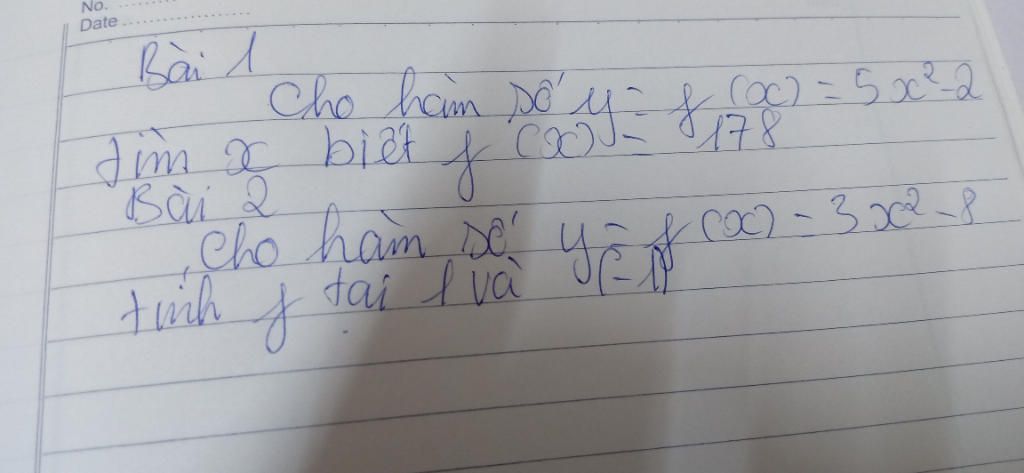 No. ............
Date ....................
Bài 1
Cho hàm số y = f(x) = 5x² - 2
tìm x biết f(x) = 178
Bài 2
Cho hàm số y = f(x) = 3x² - 8
tính f tại 1 và (-1)